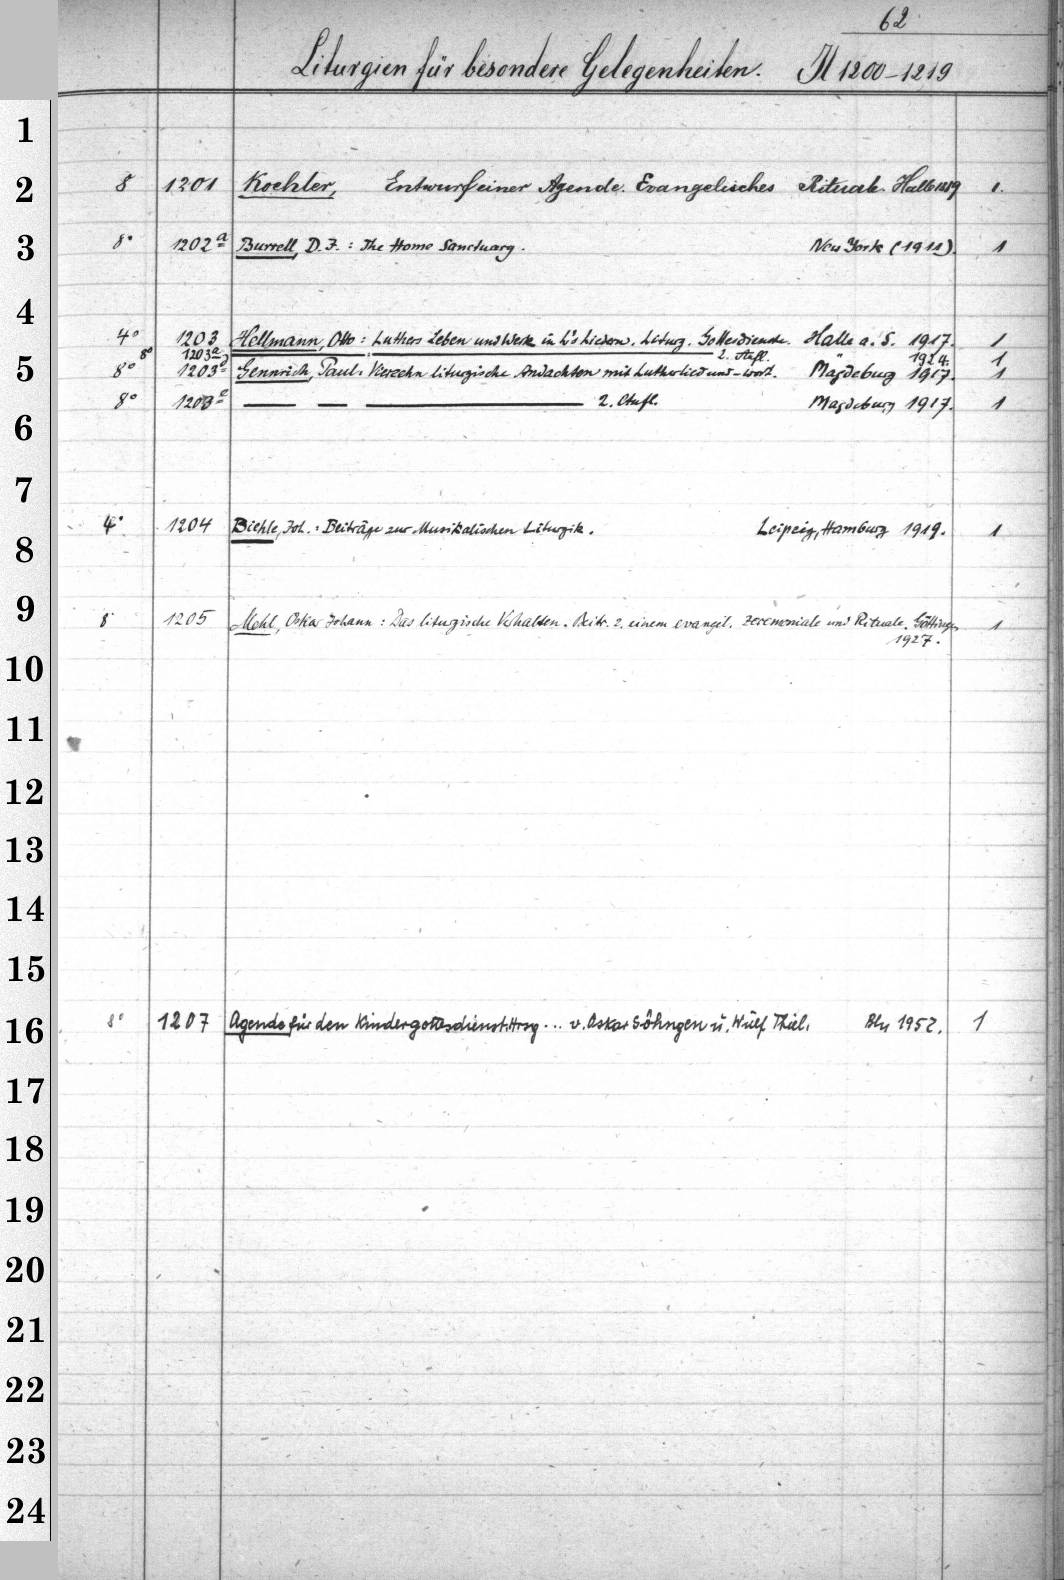 62
Liturgien für besondere Gelegenheiten. Jl 1200-1219
1
2 8 1201 Koehler, Entwurf einer Agende. Evangelisches Rituale. Halle 1889 1.
3 8° 1202a Burrell, D. J. : The Home Sanctuary. New York (1911). 1
4
4° 1203 Hellmann, Otto : Luthers Leben und Werk in L's Liedern. Liturg. Gottesdienste. Halle a. S. 1917. 1
8° 1203a 2. Aufl. " 1924. 1
5 8° 1203 Gennrich, Paul: Vierzehn liturgische Andachten mit Lutherlied und -wort. Magdeburg 1917. 1
8° 1203 — — — 2. Aufl. Magdeburg 1917. 1
6
7
4° 1204 Biehle, Joh. : Beiträge zur Musikalischen Liturgik. Leipzig, Hamburg 1919. 1
8
9 8° 1205 Mehl, Oskar Johann : Das liturgische Verhalten. Beitr. z. einem evangel. Zeremoniale und Rituale. Göttingen 1
1927.
10
11
12
13
14
15
16 8° 1207 Agende für den Kindergottesdienst. Hrsg ... v. Oskar Söhngen u. Wulf Thiel. Bln 1952. 1
17
18
19
20
21
22
23
24